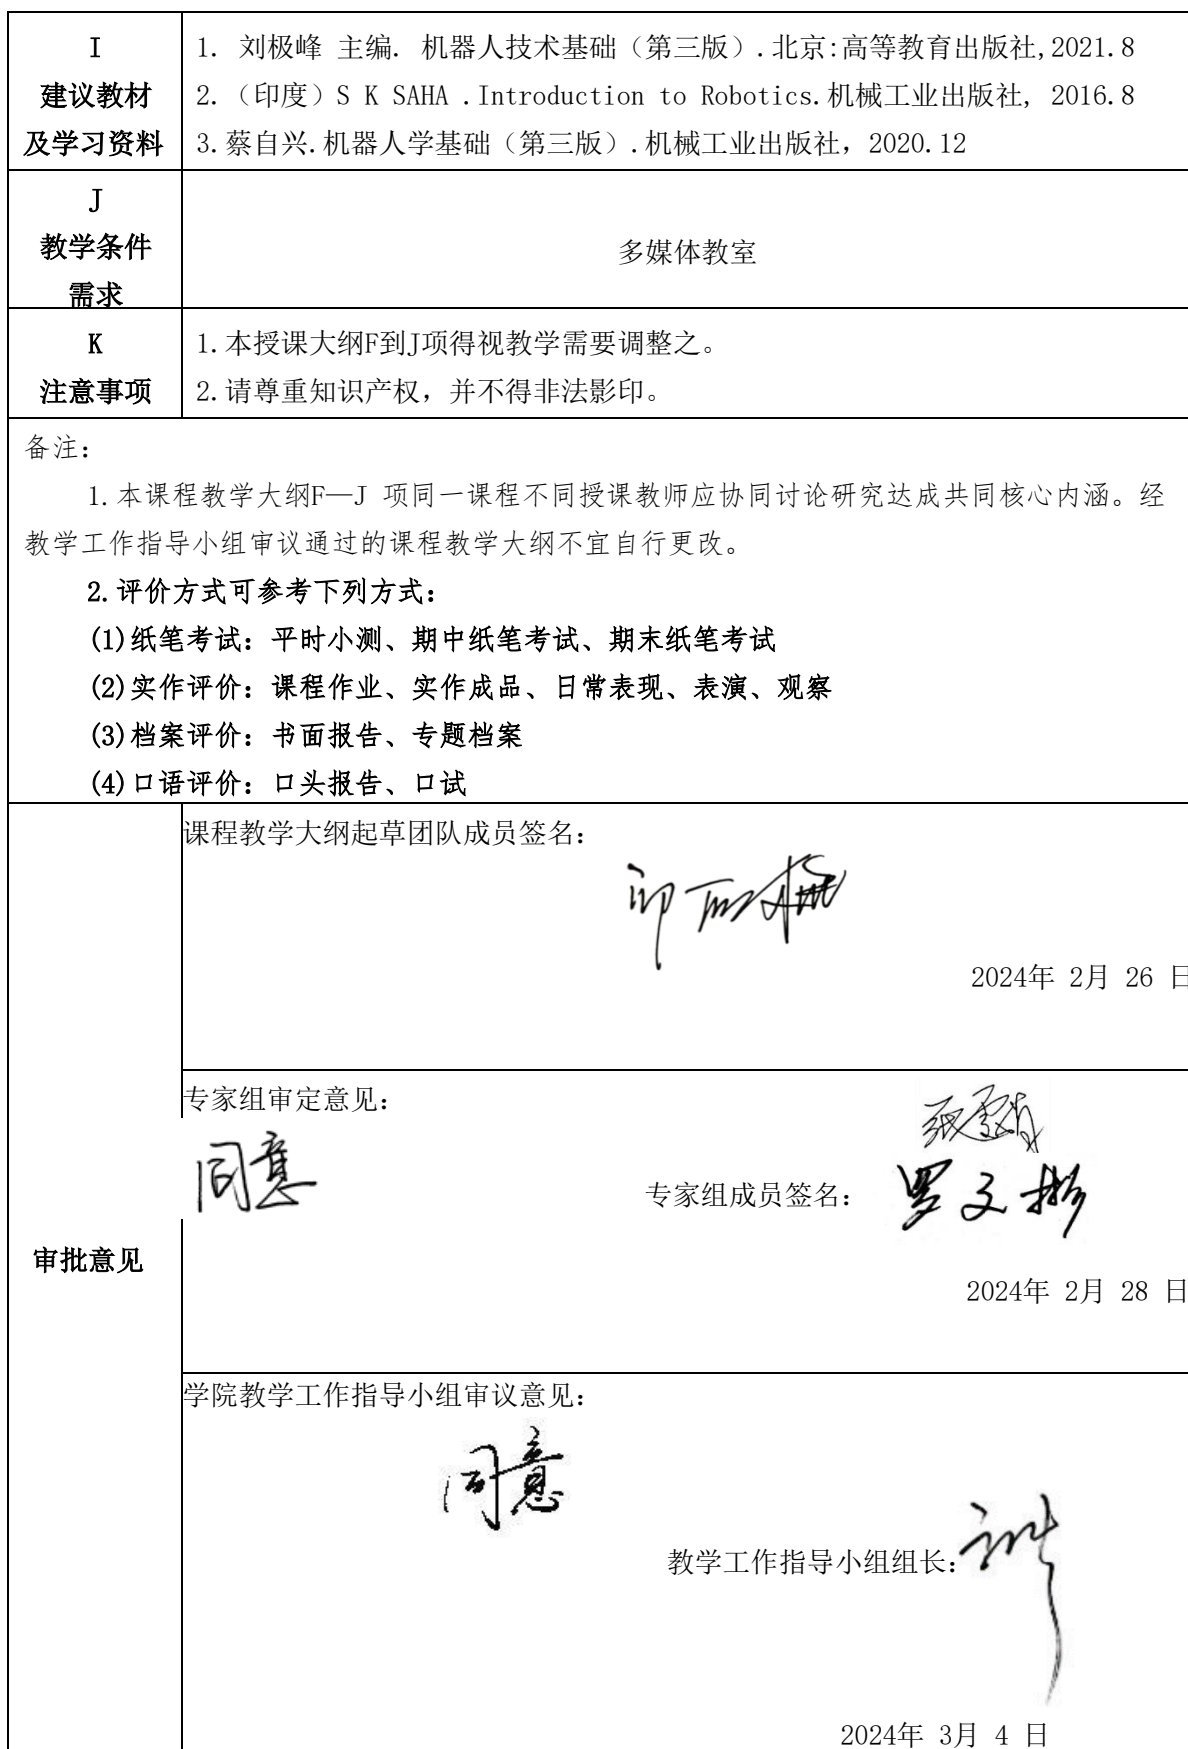 I
建议教材
及学习资料
1. 刘极峰 主编. 机器人技术基础（第三版）.北京:高等教育出版社,2021.8
2.（印度）S K SAHA .Introduction to Robotics.机械工业出版社, 2016.8
3.蔡自兴.机器人学基础（第三版）.机械工业出版社，2020.12
J
教学条件
需求
多媒体教室
K
注意事项
1.本授课大纲F到J项得视教学需要调整之。
2.请尊重知识产权，并不得非法影印。
备注：
1.本课程教学大纲F—J 项同一课程不同授课教师应协同讨论研究达成共同核心内涵。经
教学工作指导小组审议通过的课程教学大纲不宜自行更改。
2.评价方式可参考下列方式：
(1)纸笔考试：平时小测、期中纸笔考试、期末纸笔考试
(2)实作评价：课程作业、实作成品、日常表现、表演、观察
(3)档案评价：书面报告、专题档案
(4)口语评价：口头报告、口试
审批意见
课程教学大纲起草团队成员签名：
2024年 2月 26 日
专家组审定意见：
同意
专家组成员签名：
罗文彬
2024年 2月 28 日
学院教学工作指导小组审议意见：
同意
教学工作指导小组组长：
2024年 3月 4 日